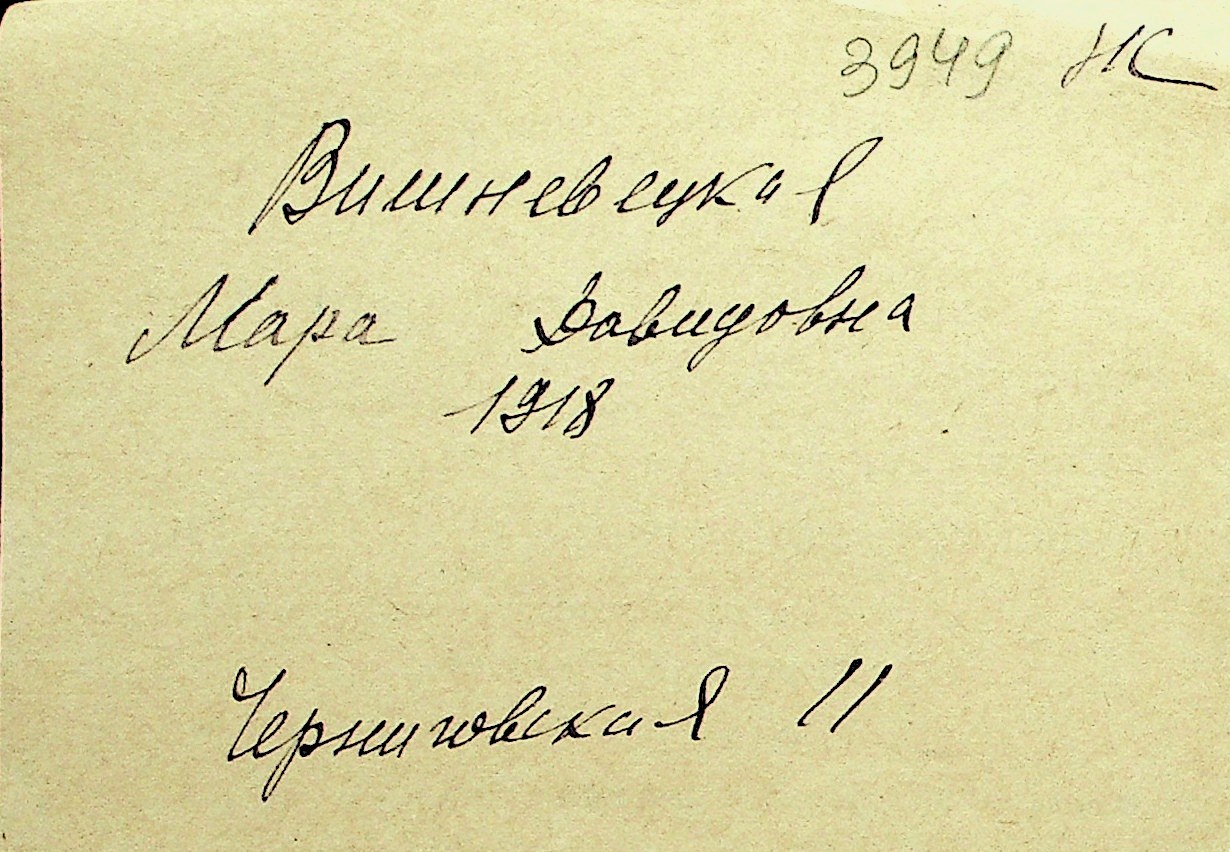 3949 НК
Вишневецкая
Мара Давидовна
1918
Черниговская 11